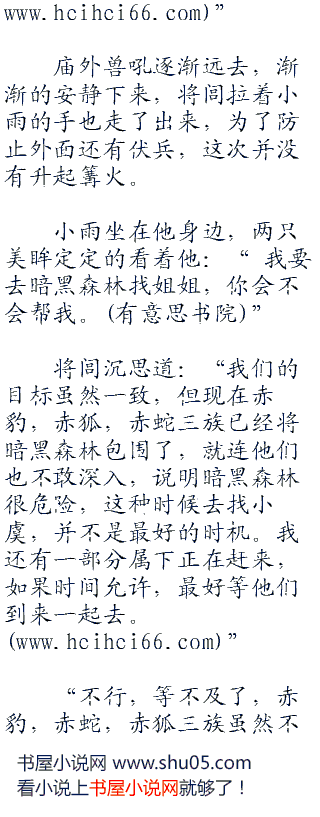 www.hcihci66.com)”
庙外兽吼逐渐远去，渐
渐的安静下来，将闾拉着小
雨的手也走了出来，为了防
止外面还有伏兵，这次并没
有升起篝火。
小雨坐在他身边，两只
美眸定定的看着他：“ 我要
去暗黑森林找姐姐，你会不
会帮我。(有意思书院)”
将闾沉思道：“我们的
目标虽然一致，但现在赤
豹，赤狐，赤蛇三族已经将
暗黑森林包围了，就连他们
也不敢深入，说明暗黑森林
很危险，这种时候去找小
虞，并不是最好的时机。我
还有一部分属下正在赶来，
如果时间允许，最好等他们
到来一起去。
(www.hcihci66.com)”
“不行，等不及了，赤
豹，赤蛇，赤狐三族虽然不
书屋小说网 www.shu05.com
看小说上书屋小说网就够了！